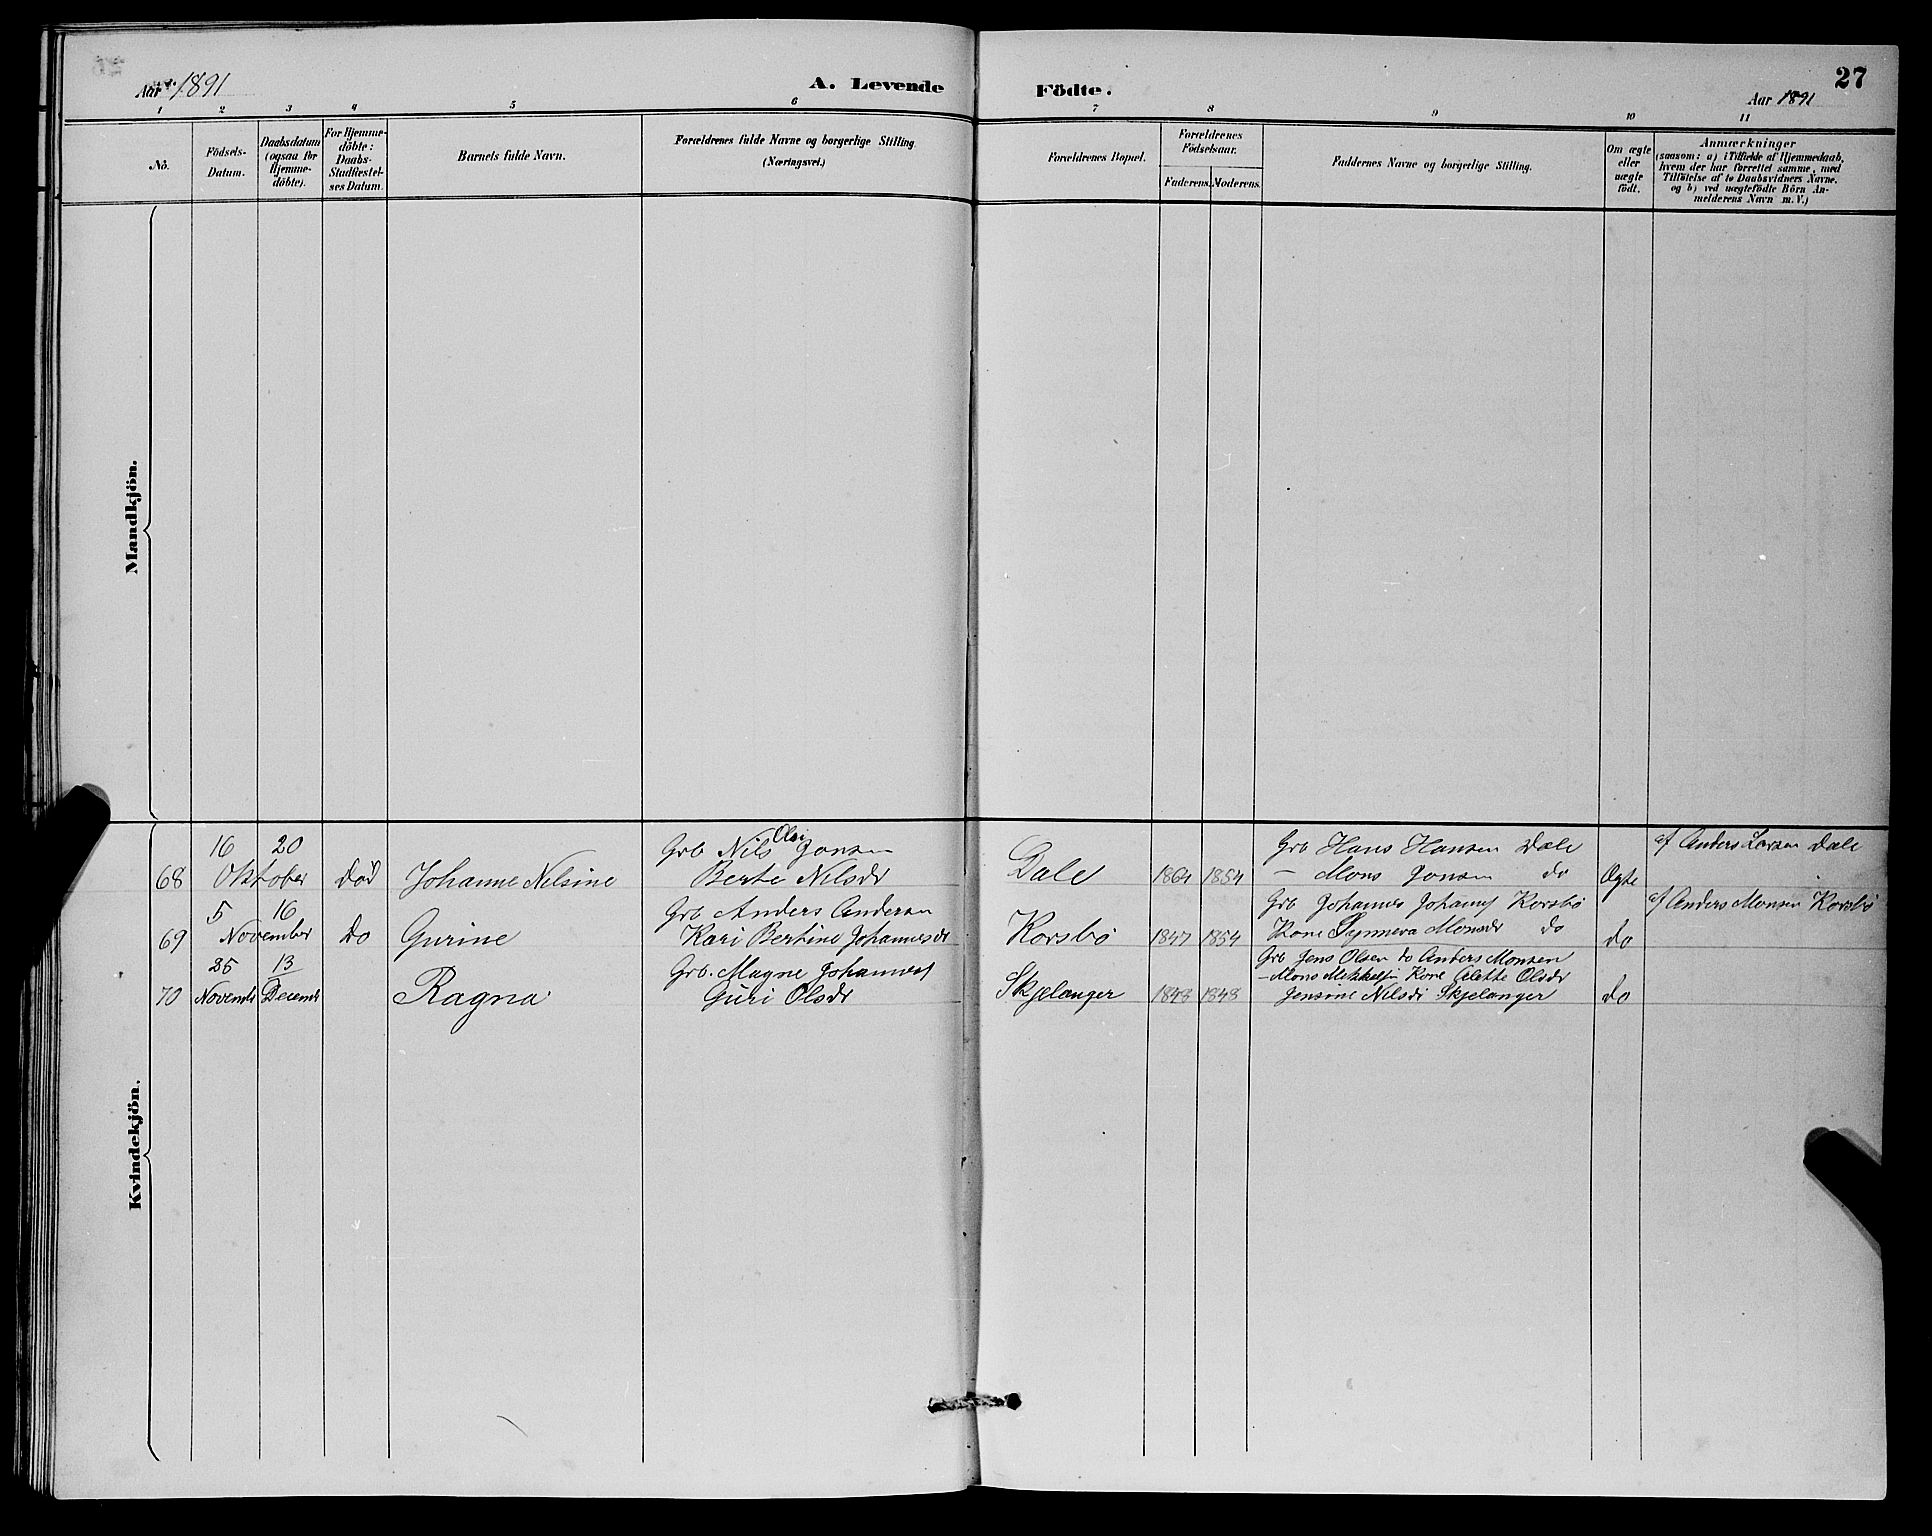 Aar 1891
A. Levende
Födte.
Aar 1891
27
1 2 3 4 5 6 7 8 9 10 11
No.
Födsels-
Datum.
Daabsdatum
(ogsaa for
Hjemme-
döbte).
For Hjemme-
döbte:
Daabs-
Stadfæstel-
ses Datum.
Barnets fulde Navn.
Forældrenes fulde Navne og borgerlige Stilling
(Næringsvei.)
Forældrenes Bopæl.
Forældrenes
Födselsaar.
Faderens. Moderens.
Faddernes Navne og borgerlige Stilling.
Om ægte
eller
uægte
födt.
Anmærkninger
(saasom: a) i Tilfælde af Hjemmedaab,
hvem der har forrettet samme, med
Tilföielse af to Daabsvidners Navne.
og b) ved uægtefödte Börn An-
melderens Navn m. V.)
Mandkjön.
Kvindekjön.
16 20 Grb Nils Olai Jonsen Grb Hans Hansen Dale af Anders Larsen Dale
68 Oktober Død Johanne Nelsine Berte Nilsdr Dale 1864 1854 – Mons Jonsen do Ægte
5 16 Grb Anders Andersen Grb Johannes Johannes Korsbø af Anders Monsen Korsbø
69 November Do Gurine Kari Bertine Johannesdr Korsbø 1847 1854 Kone Synneva Monsdr do do
25 13 Grb. Magne Johannes Grb Jens Olsen do Anders Monsen
– Mons Mikkelsen Kone Alette Olsdr
70 Novembr Decembr Ragna Guri Olsdr Skjelanger 1848 1848 Jensine Nilsdr Skjelanger do